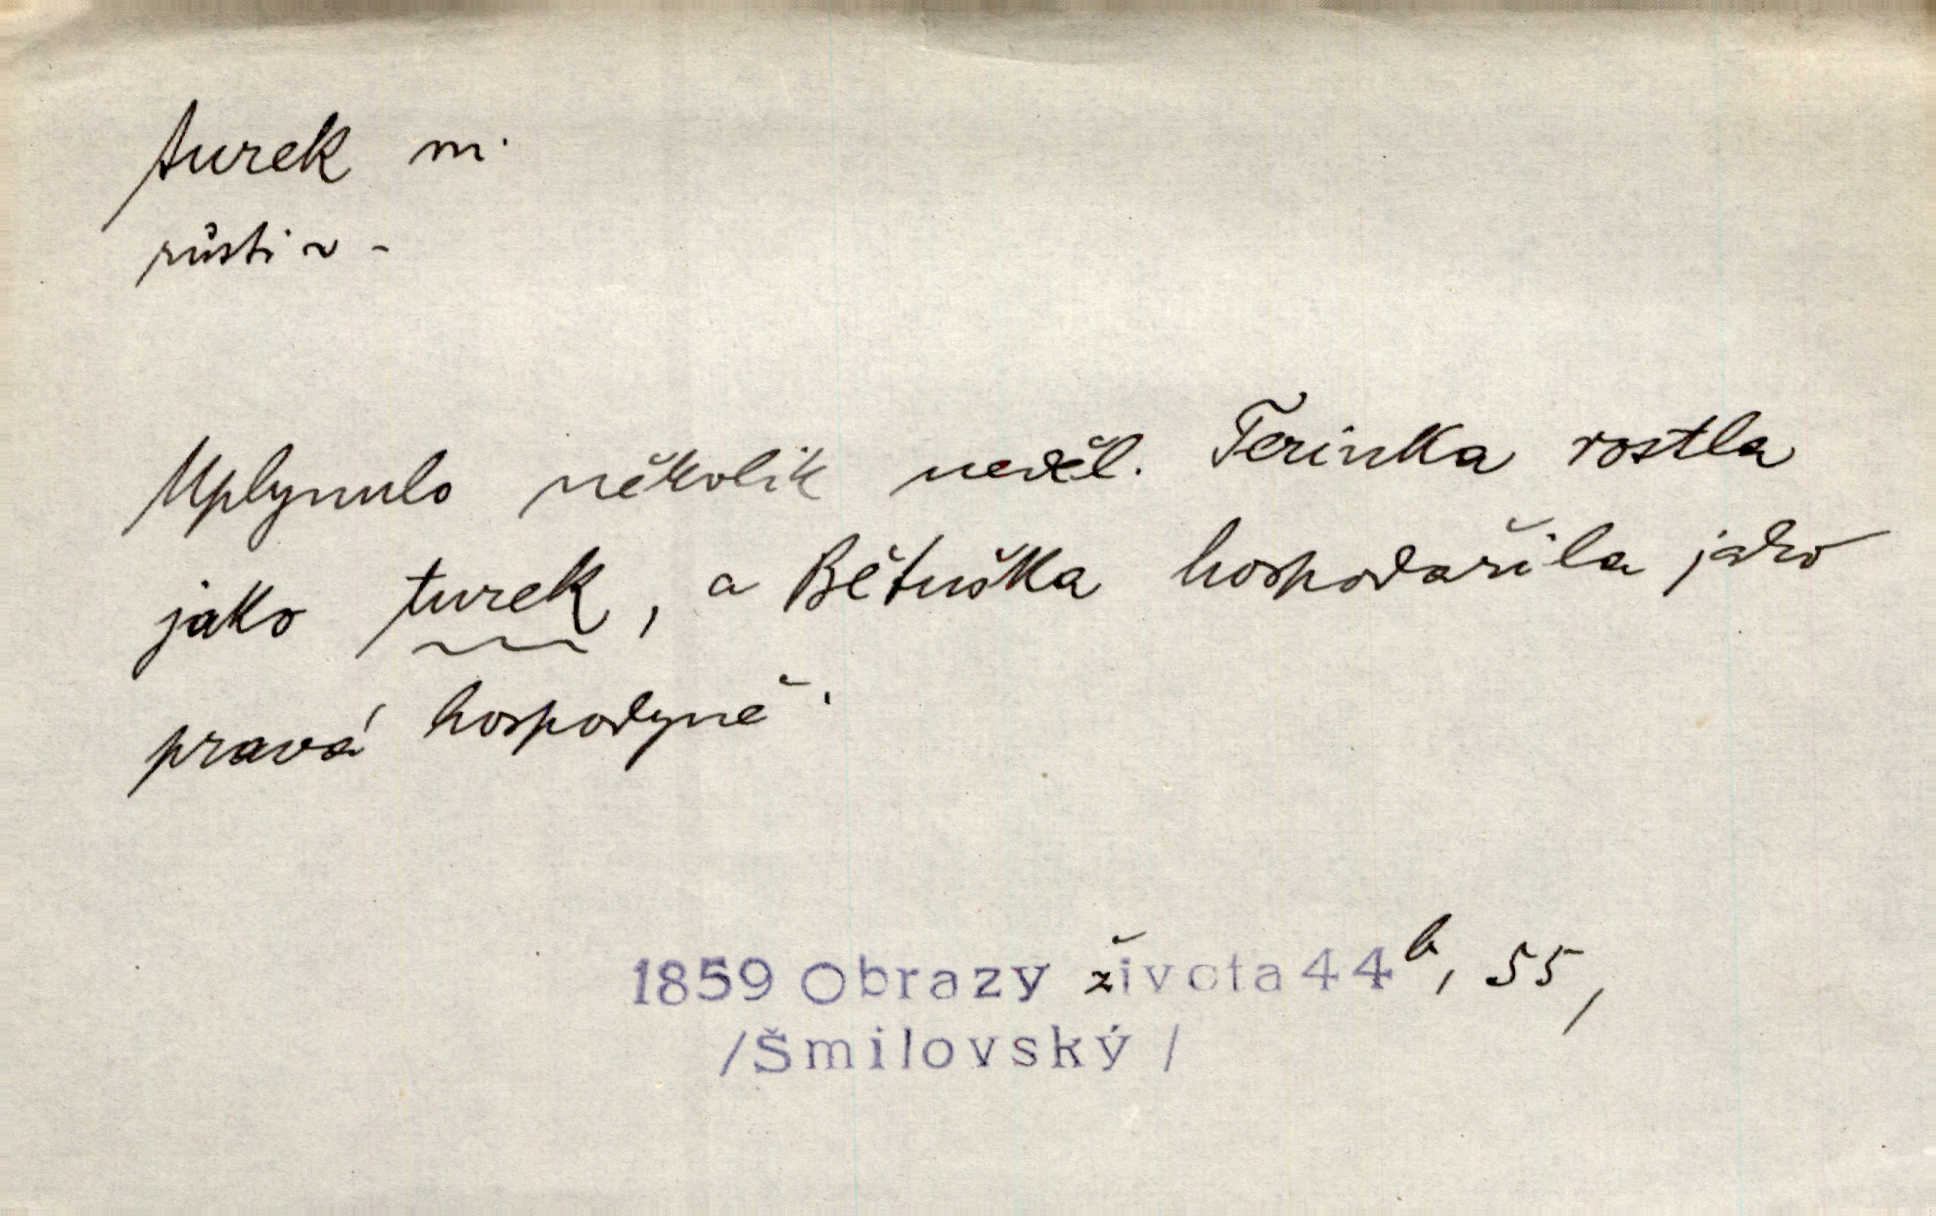 turek m.
růsti ~ -
Uplynulo několik neděl. Terinka rostla
jako turek, a Bětuška hospodařila jako
pravá hospodyně.
1859 Obrazy života 44b, 55,
/Šmilovský/